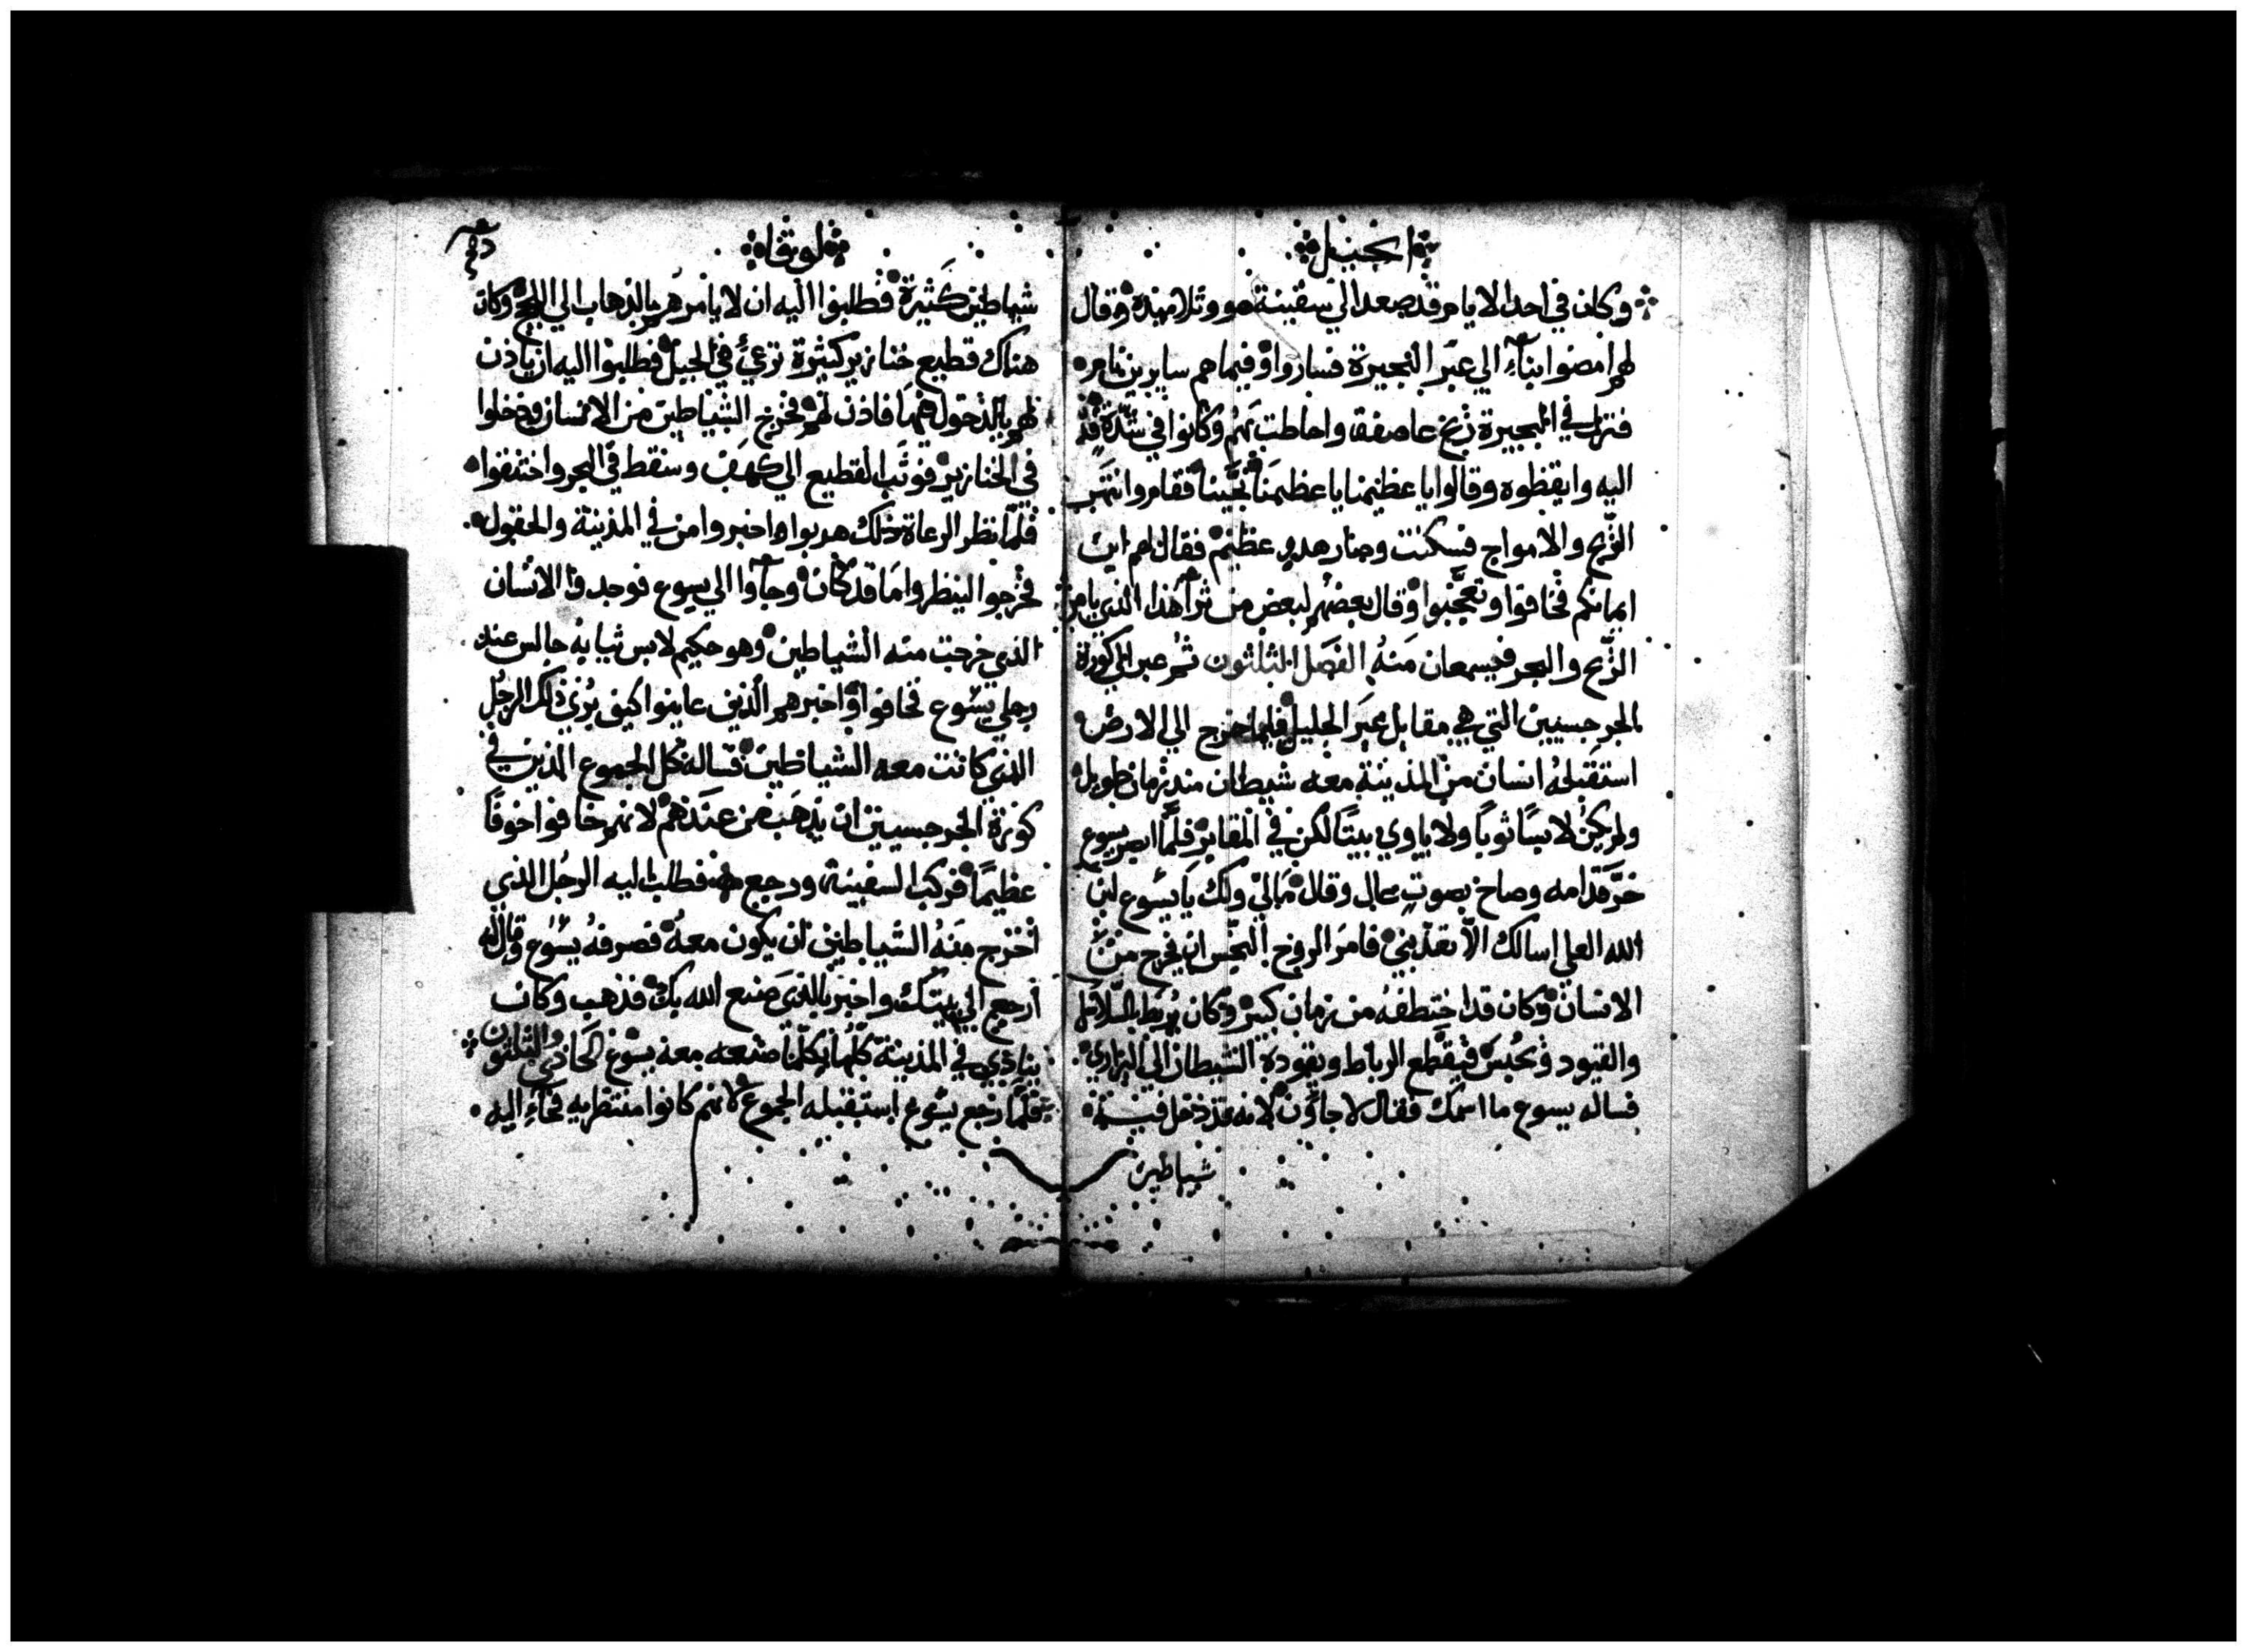 انجيل
وكان في احد الايام قد صعد الي سفينة هو وتلاميذه وقال
لهم امضوا بناء الي عبر البحيرة فساروا وفيما هم سايرين نام
فنزل في البحيرة ريح عاصفة واحاطت بهم وكانوا في شدة
اليه وايقظوه وقالوا يا عظيمنا يا عظيمنا نجينا فقام وانتهر
الريح والامواج فسكنت وصار هدو عظيم فقال لهم اين
ايمانكم فخافوا وتعجبوا وقال بعضهم لبعض من تراهذا الذي يامر
الريح والبحر فيسمعان منه الفصل الثلثون ثم عبر الي كورة
الجرجسيين التي هي مقابل عبر الجليل فلما خرج الي الارض
استقبله انسان من المدينة معه شيطان منذ زمان طويل
ولم يكن لابسا ثوبا ولا ياوي بيتا لكن في المقابر فلما ابصر يسوع
خر قدامه وصاح بصوت عال وقال ما لي ولك يا يسوع ابن
الله العلي اسالك الا تعذبني فامر الروح النجس ان يخرج من
الانسان وكان قد اختطفه من زمان كبير وكان يربط بالسلاسل
والقيود ويحبس فيقطع الرباط ويقوده الشيطان الي البراري
فساله يسوع ما اسمك فقال لاجاؤن لانه قد دخل فيه
شياطين
لوقا
شياطين كثيرة فطلبوا اليه ان لا يامرهم بالذهاب الي اللجج وكان
هناك قطيع خنازير كثيرة ترعي في الجبل فطلبوا اليه ان ياذن
لهم بالدخول فيها فاذن لهم فخرج الشياطين من الانسان ودخلوا
في الخنازير فوثب القطيع الي كهف وسقط في البحر واختنقوا
فلما نظر الرعاة ذلك هربوا واخبروا من في المدينة والحقول
فخرجوا لينظروا ما قد كان وجاوا الي يسوع فوجدوا الانسان
الذي خرجت منه الشياطين وهو حكيم لابس ثيابه جالس عند
رجلي يسوع فخافوا واخبرهم الذين عاينوا كيف بري ذلك الرجل
الذي كانت معه الشياطين فساله كل الجموع الذين في
كورة الجرجسيين ان يذهب من عندهم لانهم خافوا خوفا
عظيما فركب السفينة ورجع فطلب اليه الرجل الذي
اخرج منه الشياطين ان يكون معه فصرفه يسوع وقال له
ارجع الي بيتك واخبر بالذي صنع الله بك فذهب وكان
ينادي في المدينة كلها بكلما صنعه معه يسوع الحادي والثلثون
فلما رجع يسوع استقبله الجموع لانهم كانوا منتظريه فجاء اليه